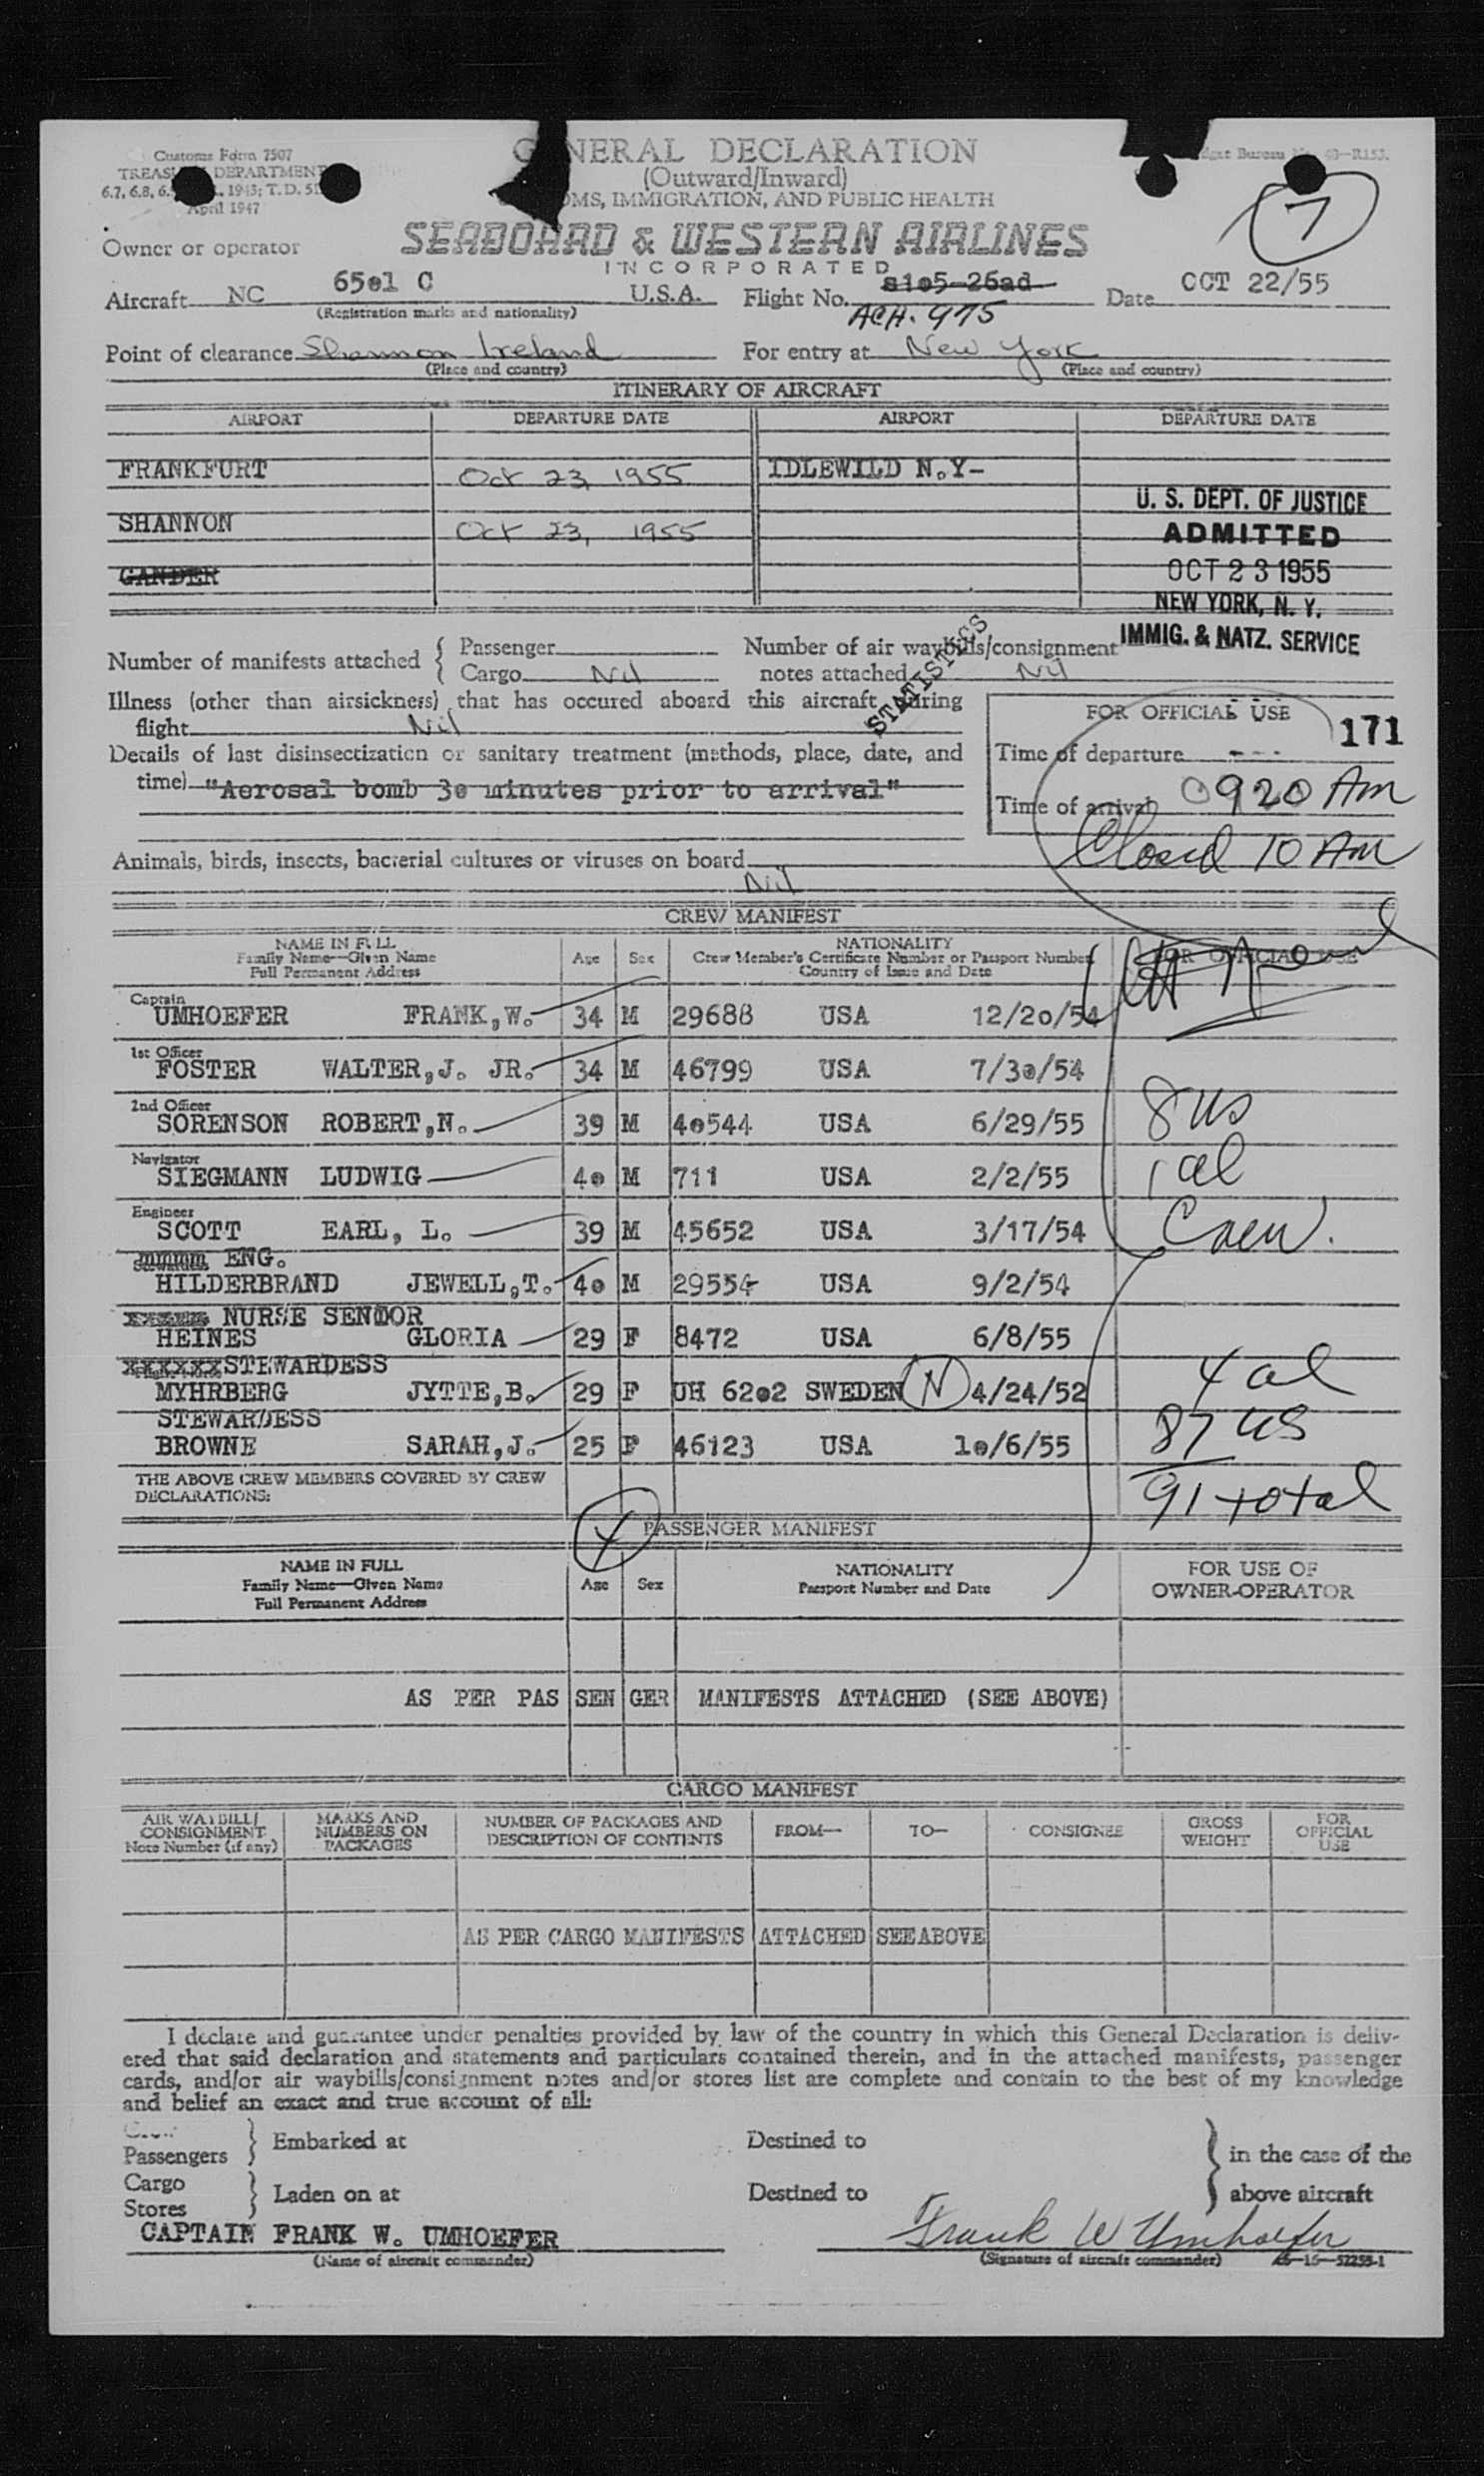 Customs Form 7507
TREAS DEPARTMENT
6.7, 6.8, 6. 1943; T. D. 51
April 1947
GENERAL DECLARATION
(Outward/Inward)
OMS, IMMIGRATION, AND PUBLIC HEALTH
Bureau R153.
7
Owner or operator SEABOARD & WESTERN AIRLINES
INCORPORATED
Aircraft NC 65ø1 C U.S.A. Flight No. 81ø5-26ad Date OCT 22/55
(Registration marks and nationality) ACH. 975
Point of clearance Shannon Ireland For entry at New York
(Place and country) (Place and country)
ITINERARY OF AIRCRAFT
AIRPORT DEPARTURE DATE AIRPORT DEPARTURE DATE
FRANKFURT Oct 23, 1955 IDLEWILD N.Y-
U. S. DEPT. OF JUSTICE
SHANNON Oct 23, 1955
ADMITTED
GANDER
OCT 23 1955
NEW YORK, N. Y.
IMMIG. & NATZ. SERVICE
Number of manifests attached { Passenger
Cargo Nil
Number of air waybills/consignment
notes attached Nil
STATISTICS
Illness (other than airsickness) that has occured aboard this aircraft during
flight Nil
Details of last disinsectization or sanitary treatment (methods, place, date, and
time) "Aerosal bomb 3ø minutes prior to arrival"
FOR OFFICIAL USE 171
Time of departure ---
Time of arrival 0920 Am
Closed 10 Am
Animals, birds, insects, bacterial cultures or viruses on board
Nil
CREW MANIFEST
NAME IN FULL
Family Name—Given Name
Full Permanent Address
Age Sex
NATIONALITY
Crew Member's Certificate Number or Passport Number
Country of Issue and Date
FOR OFFICIAL USE
Captain
UMHOEFER FRANK,W. 34 M 29688 USA 12/2ø/54
1st Officer
FOSTER WALTER,J. JR. 34 M 46799 USA 7/3ø/54
2nd Officer
SORENSON ROBERT,N. 39 M 4ø544 USA 6/29/55 8 US
Navigator
SIEGMANN LUDWIG 4ø M 711 USA 2/2/55 1 al
Engineer
SCOTT EARL, L. 39 M 45652 USA 3/17/54 Crew.
ENG.
HILDERBRAND JEWELL,T. 4ø M 29554 USA 9/2/54
NURSE SENIOR
HEINES GLORIA 29 F 8472 USA 6/8/55
xxxxxxSTEWARDESS
MYHRBERG JYTTE,B. 29 F UH 62ø2 SWEDEN N 4/24/52 4 al
STEWARDESS
BROWNE SARAH,J. 25 F 46123 USA 1ø/6/55 87 US
THE ABOVE CREW MEMBERS COVERED BY CREW
DECLARATIONS:
91 total
PASSENGER MANIFEST
NAME IN FULL
Family Name—Given Name
Full Permanent Address
Age Sex
NATIONALITY
Passport Number and Date
FOR USE OF
OWNER-OPERATOR
AS PER PAS SEN GER MANIFESTS ATTACHED (SEE ABOVE)
CARGO MANIFEST
AIR WAYBILL/
CONSIGNMENT
Note Number (if any)
MARKS AND
NUMBERS ON
PACKAGES
NUMBER OF PACKAGES AND
DESCRIPTION OF CONTENTS
FROM— TO— CONSIGNEE
GROSS
WEIGHT
FOR
OFFICIAL
USE
AS PER CARGO MANIFESTS ATTACHED SEE ABOVE
I declare and guarantee under penalties provided by law of the country in which this General Declaration is deliv-
ered that said declaration and statements and particulars contained therein, and in the attached manifests, passenger
cards, and/or air waybills/consignment notes and/or stores list are complete and contain to the best of my knowledge
and belief an exact and true account of all:
Crew
Passengers } Embarked at Destined to } in the case of the
Cargo
Stores } Laden on at Destined to above aircraft
CAPTAIN FRANK W. UMHOEFER Frank W Umhoefer
(Name of aircraft commander) (Signature of aircraft commander) 16—52255-1